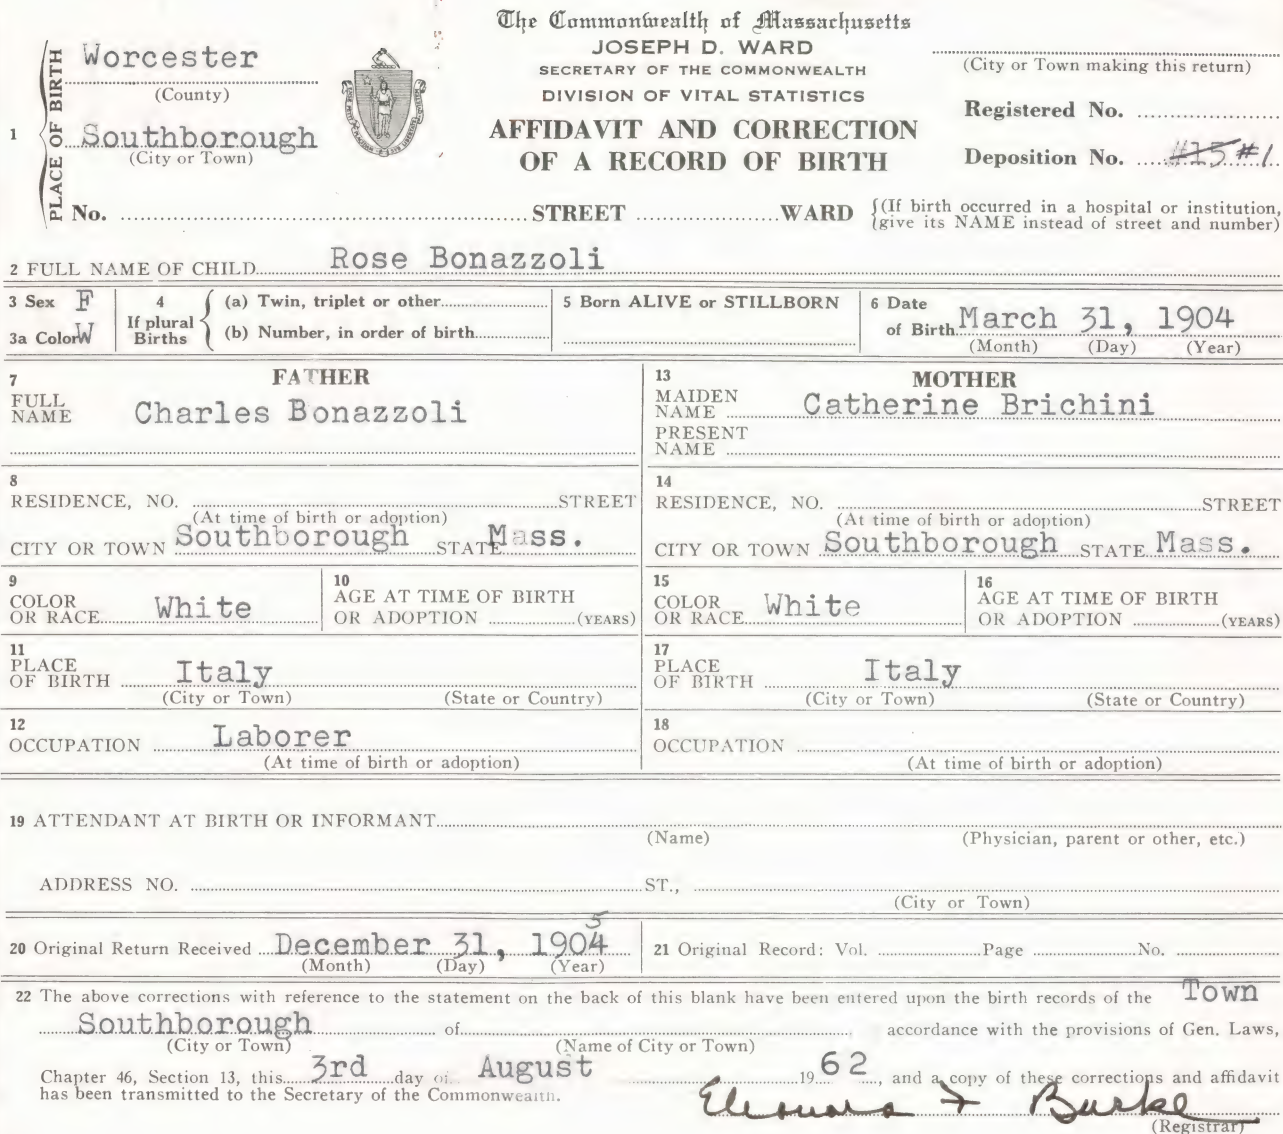 The Commonwealth of Massachusetts
JOSEPH D. WARD
SECRETARY OF THE COMMONWEALTH
DIVISION OF VITAL STATISTICS
AFFIDAVIT AND CORRECTION
OF A RECORD OF BIRTH
1 PLACE OF BIRTH
Worcester
(County)
Southborough
(City or Town)
(City or Town making this return)
Registered No.
Deposition No. #15 #1
No. STREET WARD {(If birth occurred in a hospital or institution,
(give its NAME instead of street and number)
2 FULL NAME OF CHILD Rose Bonazzoli
3 Sex F
3a Color W
4 If plural Births
(a) Twin, triplet or other
(b) Number, in order of birth
5 Born ALIVE or STILLBORN
6 Date of Birth March 31, 1904
(Month) (Day) (Year)
FATHER
7 FULL NAME Charles Bonazzoli
8
RESIDENCE, NO. STREET
(At time of birth or adoption)
CITY OR TOWN Southborough STATE Mass.
9 COLOR OR RACE White
10 AGE AT TIME OF BIRTH
OR ADOPTION (YEARS)
11 PLACE OF BIRTH Italy
(City or Town) (State or Country)
12
OCCUPATION Laborer
(At time of birth or adoption)
MOTHER
13 MAIDEN NAME Catherine Brichini
PRESENT NAME
14
RESIDENCE, NO. STREET
(At time of birth or adoption)
CITY OR TOWN Southborough STATE Mass.
15 COLOR OR RACE White
16 AGE AT TIME OF BIRTH
OR ADOPTION (YEARS)
17 PLACE OF BIRTH Italy
(City or Town) (State or Country)
18
OCCUPATION
(At time of birth or adoption)
19 ATTENDANT AT BIRTH OR INFORMANT
(Name) (Physician, parent or other, etc.)
ADDRESS NO. ST.,
(City or Town)
5
20 Original Return Received December 31, 1904
(Month) (Day) (Year)
21 Original Record: Vol. Page No.
22 The above corrections with reference to the statement on the back of this blank have been entered upon the birth records of the Town
Southborough of accordance with the provisions of Gen. Laws,
(City or Town) (Name of City or Town)
Chapter 46, Section 13, this 3rd day of August 19 62, and a copy of these corrections and affidavit
has been transmitted to the Secretary of the Commonwealth.
Eleonora F Burke
(Registrar)